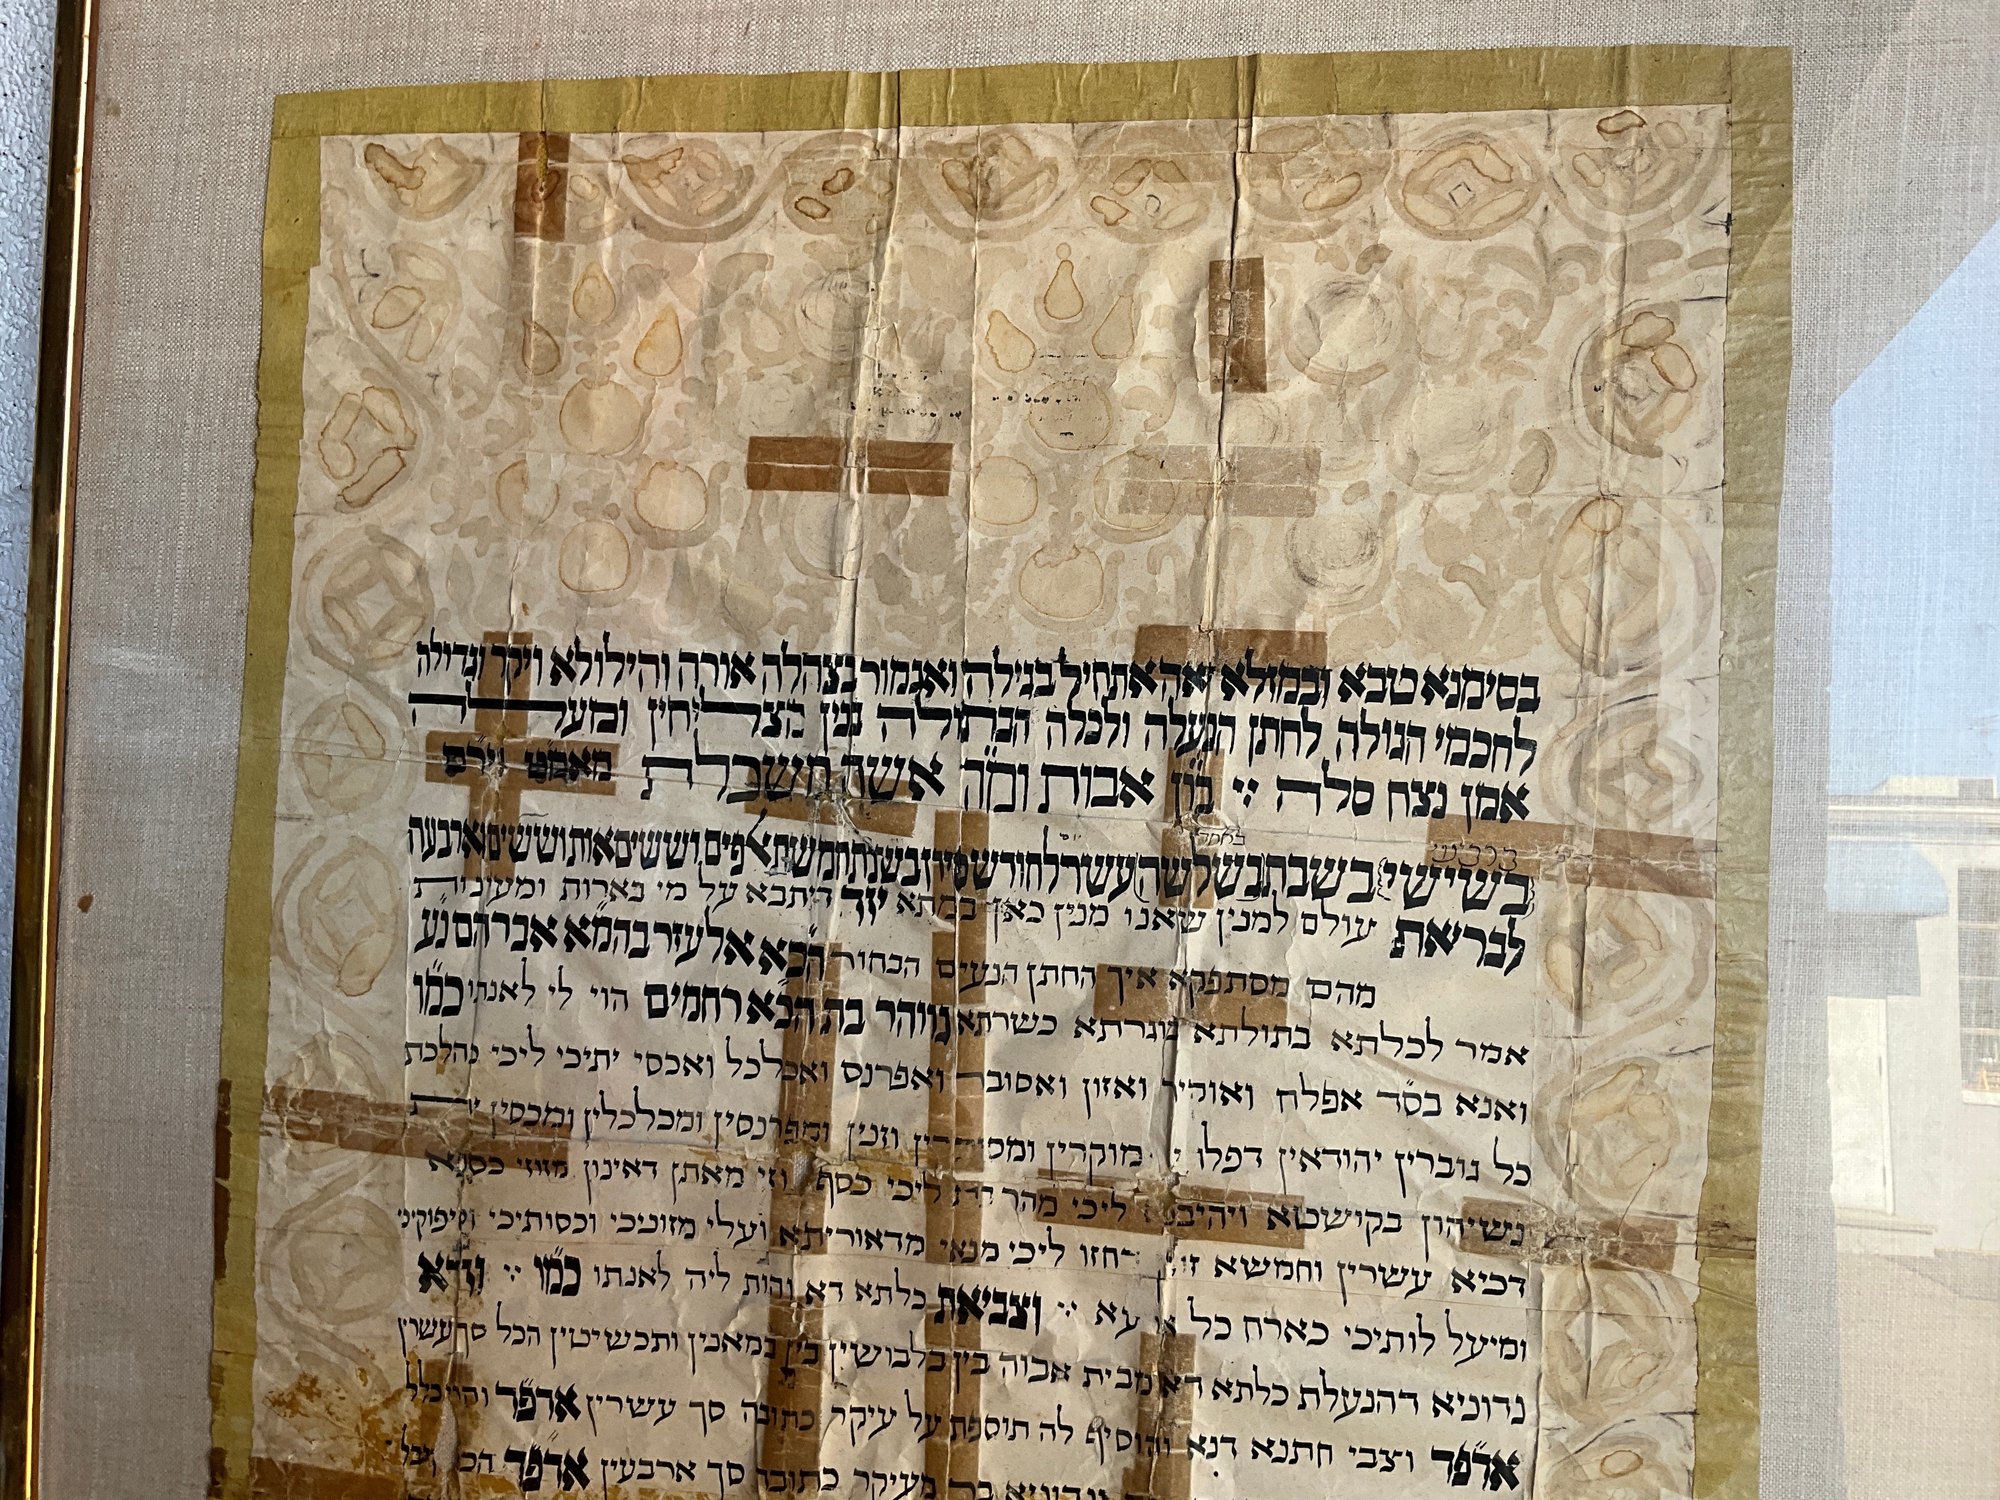 בסימנא טבא ובמזלא יאה אתחיל בגילה ואגמור בצהלה אורה והילולא ויקר וגדולה
לחכמי הגולה לחתן הנעלה ולכלה הבתולה בנין מצליחין ומעלה
אמן נצח סלה בית והון אבות ומה׳ אשה משכלת
בשישי בשבת בשלשה עשר לחודש סיון בשנת חמשת אלפים ושש מאות וששים וארבעה
לבריאת עולם למנין שאנו מנין כאן במתא יזד דיתבא על מי בארות ומעינות
מהם מסתפקא איך החתן הנעים הבחור הב״א אלעזר בה״מא אברהם נ״ע
אמר לכלתא בתולתא בוגרתא כשרתא גווהר בת הב״א רחמים הוי לי לאנתו כמ״ו
ואנא בס״ד אפלח ואוקיר ואזון ואסובר ואפרנס ואכלכל ואכסי יתיכי ליכי כהלכת
כל גוברין יהודאין דפלחין מוקרין ומסוברין וזנין ומפרנסין ומכלכלין ומכסין ית
נשיהון בקושטא ויהיבנא ליכי מהריכי ליכי כסף זוזי מאתן דאינון מזוזי כספא
דכיא עשרין וחמשא זוזי דחזו ליכי מנאי מדאוריתא ועלי מזוניכי וכסותיכי וסיפוקיכי
ומיעל לותיכי כארח כל ארעא וצביאת כלתא דא והות ליה לאנתו כמ״ו ודא
נדוניא דהנעלת כלתא דא מבית אבוה בין בלבושין בין במאנין ותכשיטין הכל סך עשרין
אדפ״ד וצבי חתנא דנא והוסיף לה תוספת על עיקר כתובה סך עשרין אדפ״ד והוי כלל
מעיקר כתובה סך ארבעין אדפ״ד